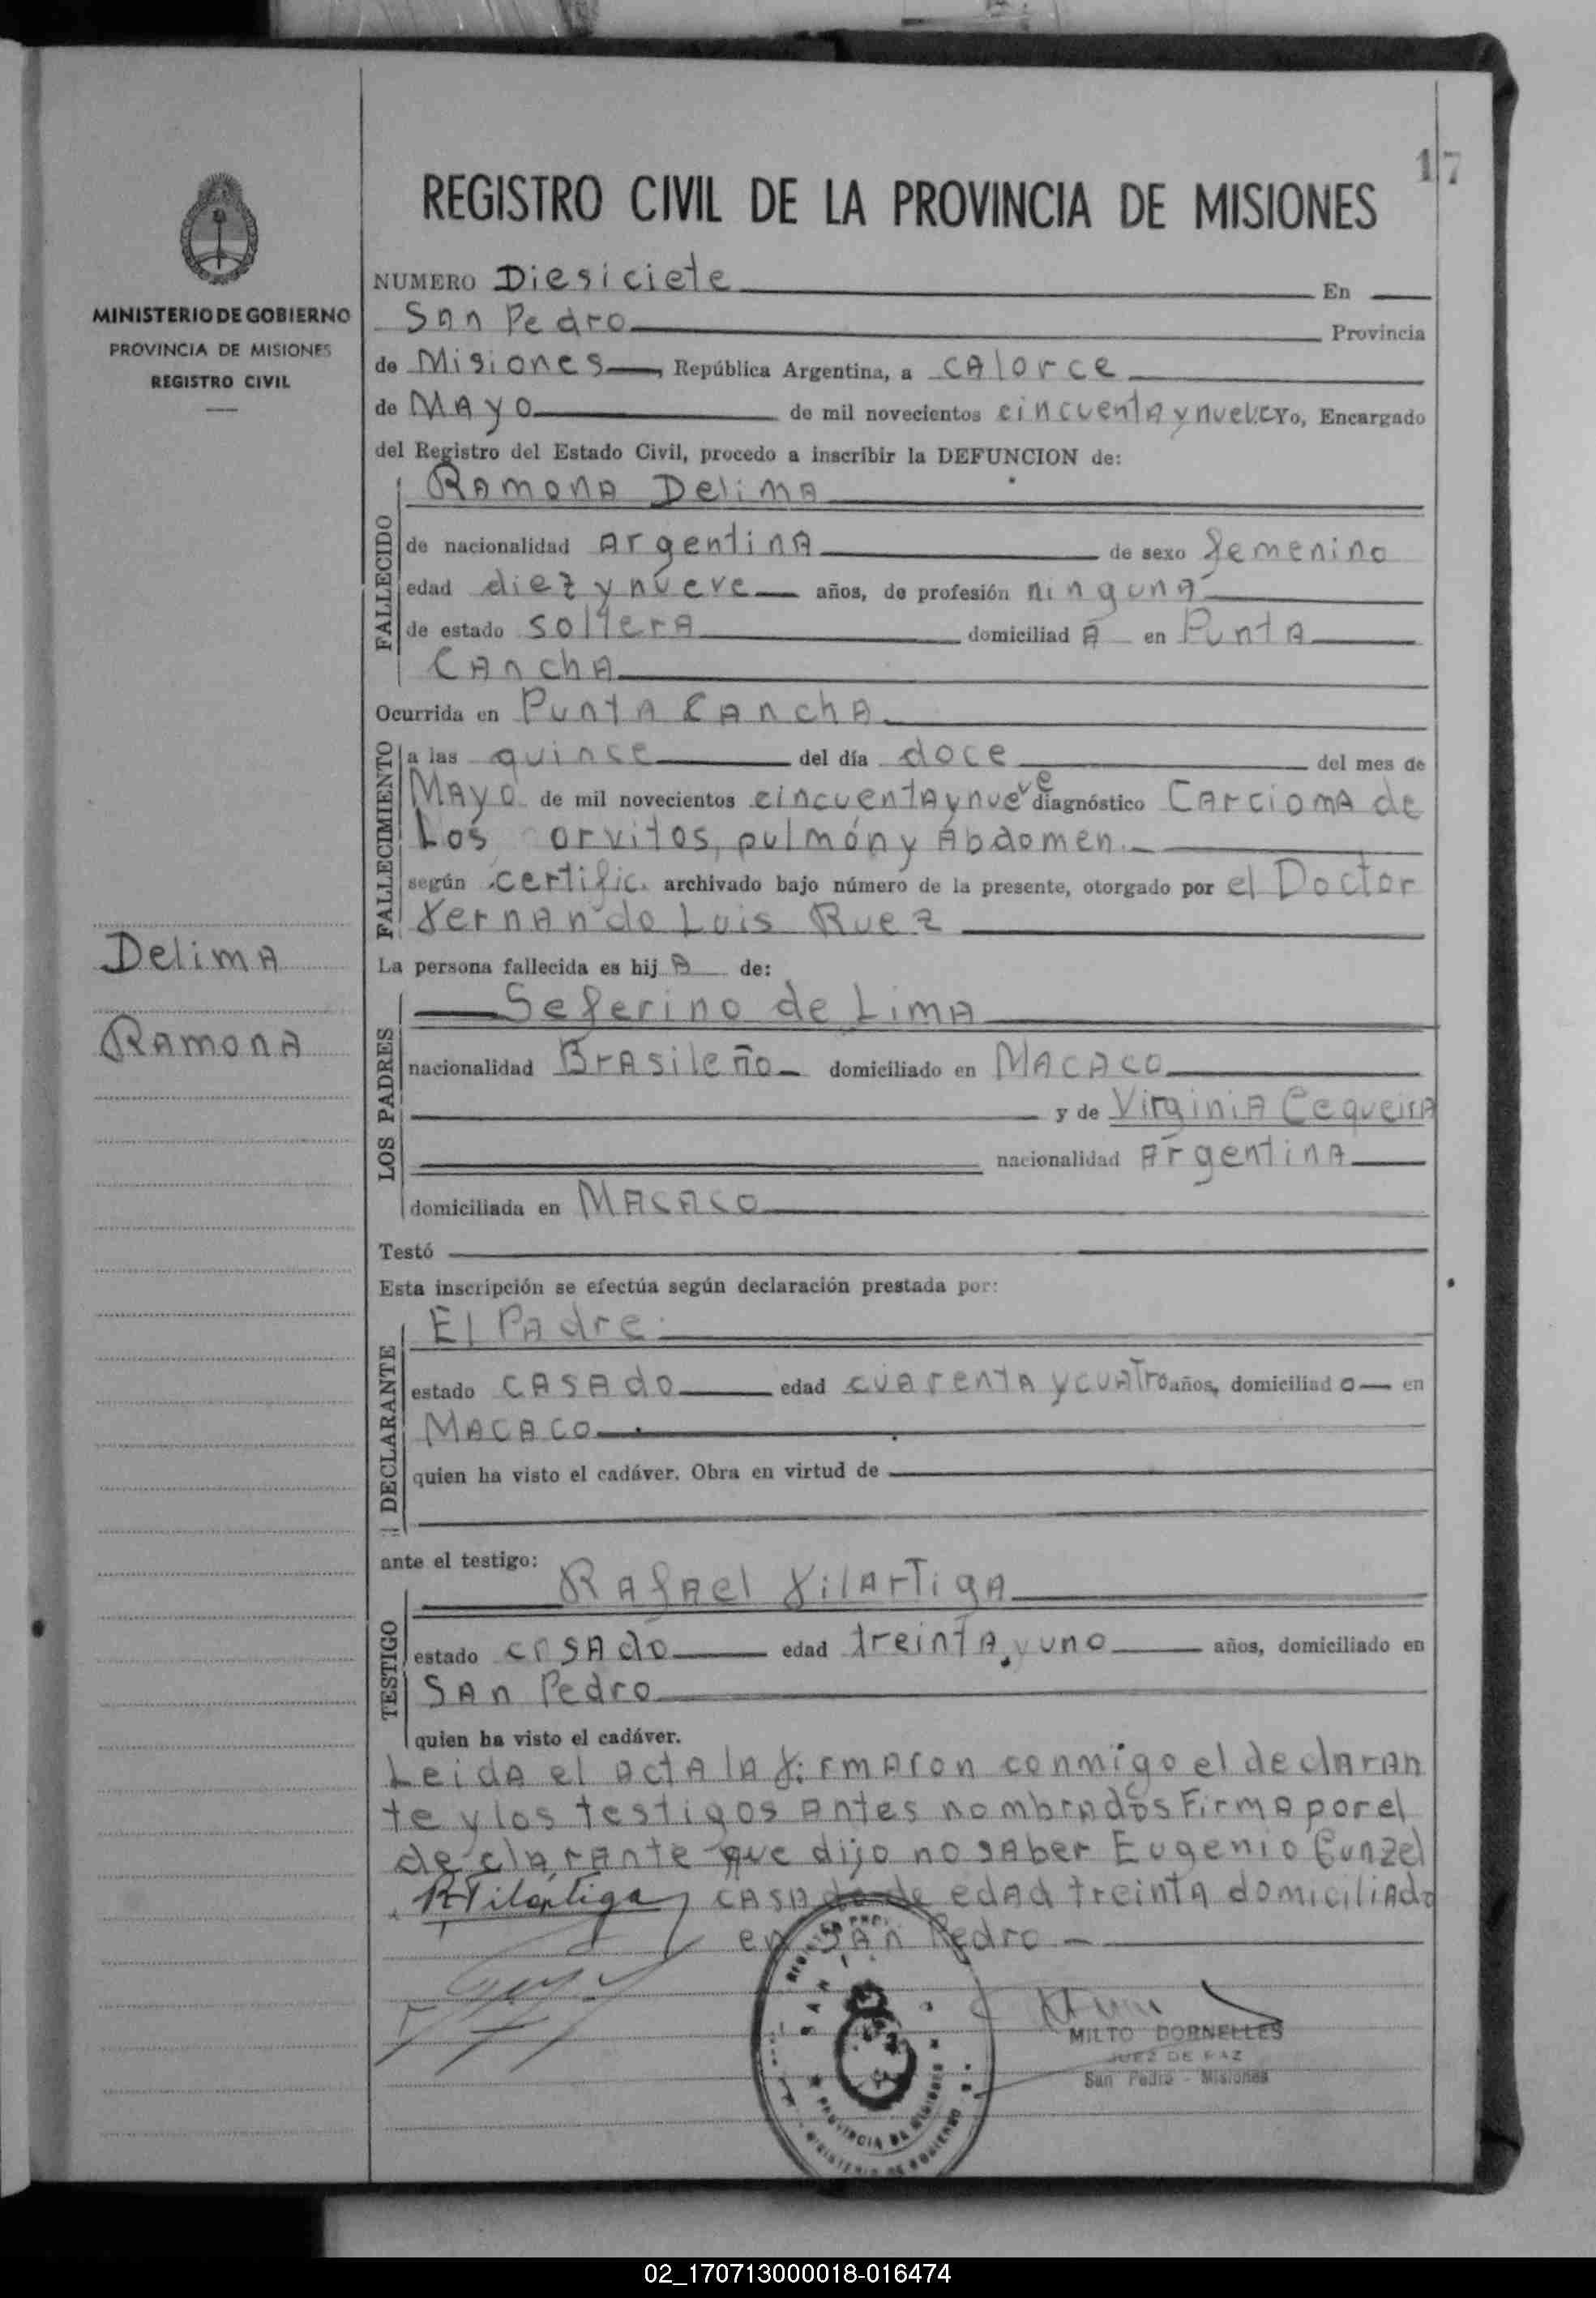 17
REGISTRO CIVIL DE LA PROVINCIA DE MISIONES
MINISTERIO DE GOBIERNO
PROVINCIA DE MISIONES
REGISTRO CIVIL
NUMERO Diesiciete En
San Pedro Provincia
de Misiones, República Argentina, a catorce
de Mayo de mil novecientos cincuenta y nueve Yo, Encargado
del Registro del Estado Civil, procedo a inscribir la DEFUNCION de:
Ramona Delima
FALLECIDO
de nacionalidad argentina de sexo femenino
edad diez y nueve años, de profesión ninguna
de estado soltera domiciliad a en Punta
Cancha
Ocurrida en Punta Cancha
FALLECIMIENTO
a las quince del día doce del mes de
Mayo de mil novecientos cincuenta y nueve diagnóstico Carcioma de
Los orvitos, pulmón y Abdomen.
según certific. archivado bajo número de la presente, otorgado por el Doctor
Fernando Luis Ruez
Delima
Ramona
La persona fallecida es hij a de:
LOS PADRES
Seferino de Lima
nacionalidad Brasileño domiciliado en Macaco
y de Virginia Cequeira
nacionalidad argentina
domiciliada en Macaco
Testó
Esta inscripción se efectúa según declaración prestada por:
DECLARANTE
El Padre
estado casado edad cuarenta y cuatro años, domiciliad o en
Macaco
quien ha visto el cadáver. Obra en virtud de
ante el testigo:
TESTIGO
Rafael Filartiga
estado casado edad treinta y uno años, domiciliado en
San Pedro
quien ha visto el cadáver.
Leida el acta la firmaron conmigo el declaran
te y los testigos antes nombrados Firma por el
declarante que dijo no saber Eugenio Cunzel
R Filartiga casado de edad treinta domiciliado
en San Pedro
MILTO DORNELLES
JUEZ DE PAZ
San Pedro - Misiones
PROVINCIA DE MISIONES
MINISTERIO DE GOBIERNO
02_170713000018-016474